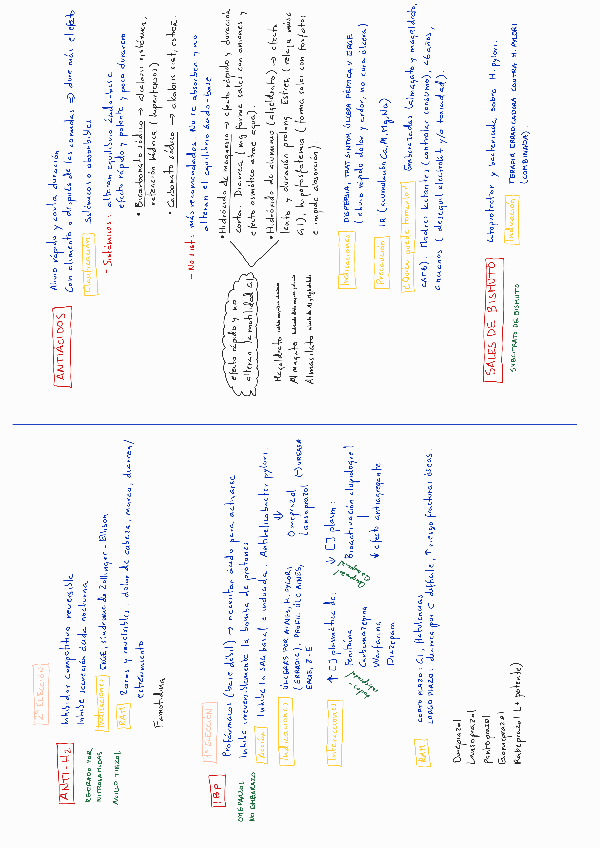 2ª ELECCIÓN
ANTI-H2
Inhibidor competitivo reversible
Inhibe secreción ácida nocturna
RETIRADO POR
NITROSAMIDAS
ANILLO TIAZOL
Indicaciones ERGE, síndrome de Zollinger-Ellison
RAM Raras y reversibles: dolor de cabeza, mareo, diarrea/
estreñimiento
Famotidina
1ª ELECCIÓN
IBP
Profármacos (base débil) → necesitan ácido para activarse
Inhibe irreversiblemente la bomba de protones
OMEPRAZOL
NO EMBARAZO
Acción Inhibe la SAG basal e inducida. Antihelicobacter pylori.
Indicaciones ÚLCERAS POR AINES, H. PYLORI,
(ERRADIC), PROFIL ÚLC AINES,
ERGE, Z-E
↓
Omeprazol (-) UREASA
Lansoprazol
Interacciones ↑ [ ] plasmática de:
Fenitoína
Carbamazepina
Warfarina
Diazepam
↓ [ ] plasm:
Bioactivación clopidogrel
↓ efecto antiagregante
RAM CORTO PLAZO: GI, flatulencias
LARGO PLAZO: diarrea por C. difficile, ↑ riesgo fracturas óseas
Omeprazol
Lansoprazol
Pantoprazol
Esomeprazol
Rabeprazol (+ potente)
ANTIÁCIDOS
Alivio rápido y corta duración
Con alimento o después de las comidas ⇒ dura más el efecto
Clasificación Sistémicos o absorbibles
- Sistémicos: alteran equilibrio ácido-base
efecto rápido y potente y poco duradero
• Bicarbonato sódico → alcalosis sistémica,
retención hídrica (hipertensos)
• Carbonato sódico → alcalosis sist, estreñ.
- No sist: más recomendados. No se absorben y no
alteran el equilibrio ácido-base
• Hidróxido de magnesio → efecto rápido y duración
corta. Diarrea (Mg forma sales con aniones y
efecto osmótico atrae agua).
• Hidróxido de aluminio (algeldrato) → efecto
lento y duración prolong. Estreñ. (relaja músc
GI), hipofosfatemia (forma sales con fosfatos
e impide absorción)
efecto rápido y no
alteran la motilidad GI
Magaldrato
Almagato
Almasilato
Indicaciones DISPEPSIA, TRAT SINTOM ÚLCERA PÉPTICA Y ERGE
(alivio rápido dolor y ardor, no cura úlcera)
Precaución IR (acumulación Ca, Al, Mg, Na)
¿Quién puede tomarlos? Embarazadas (almagato y magaldrato,
CAT B). Madres lactantes (controlar consumo), <6 años,
ancianos (desequil electrolít y/o toxicidad).
SALES DE BISMUTO
Citoprotector y bactericida sobre H. pylori.
SUBCITRATO DE BISMUTO
Indicación TERAPIA ERRADICADORA CONTRA H. PYLORI
(COMBINADA)